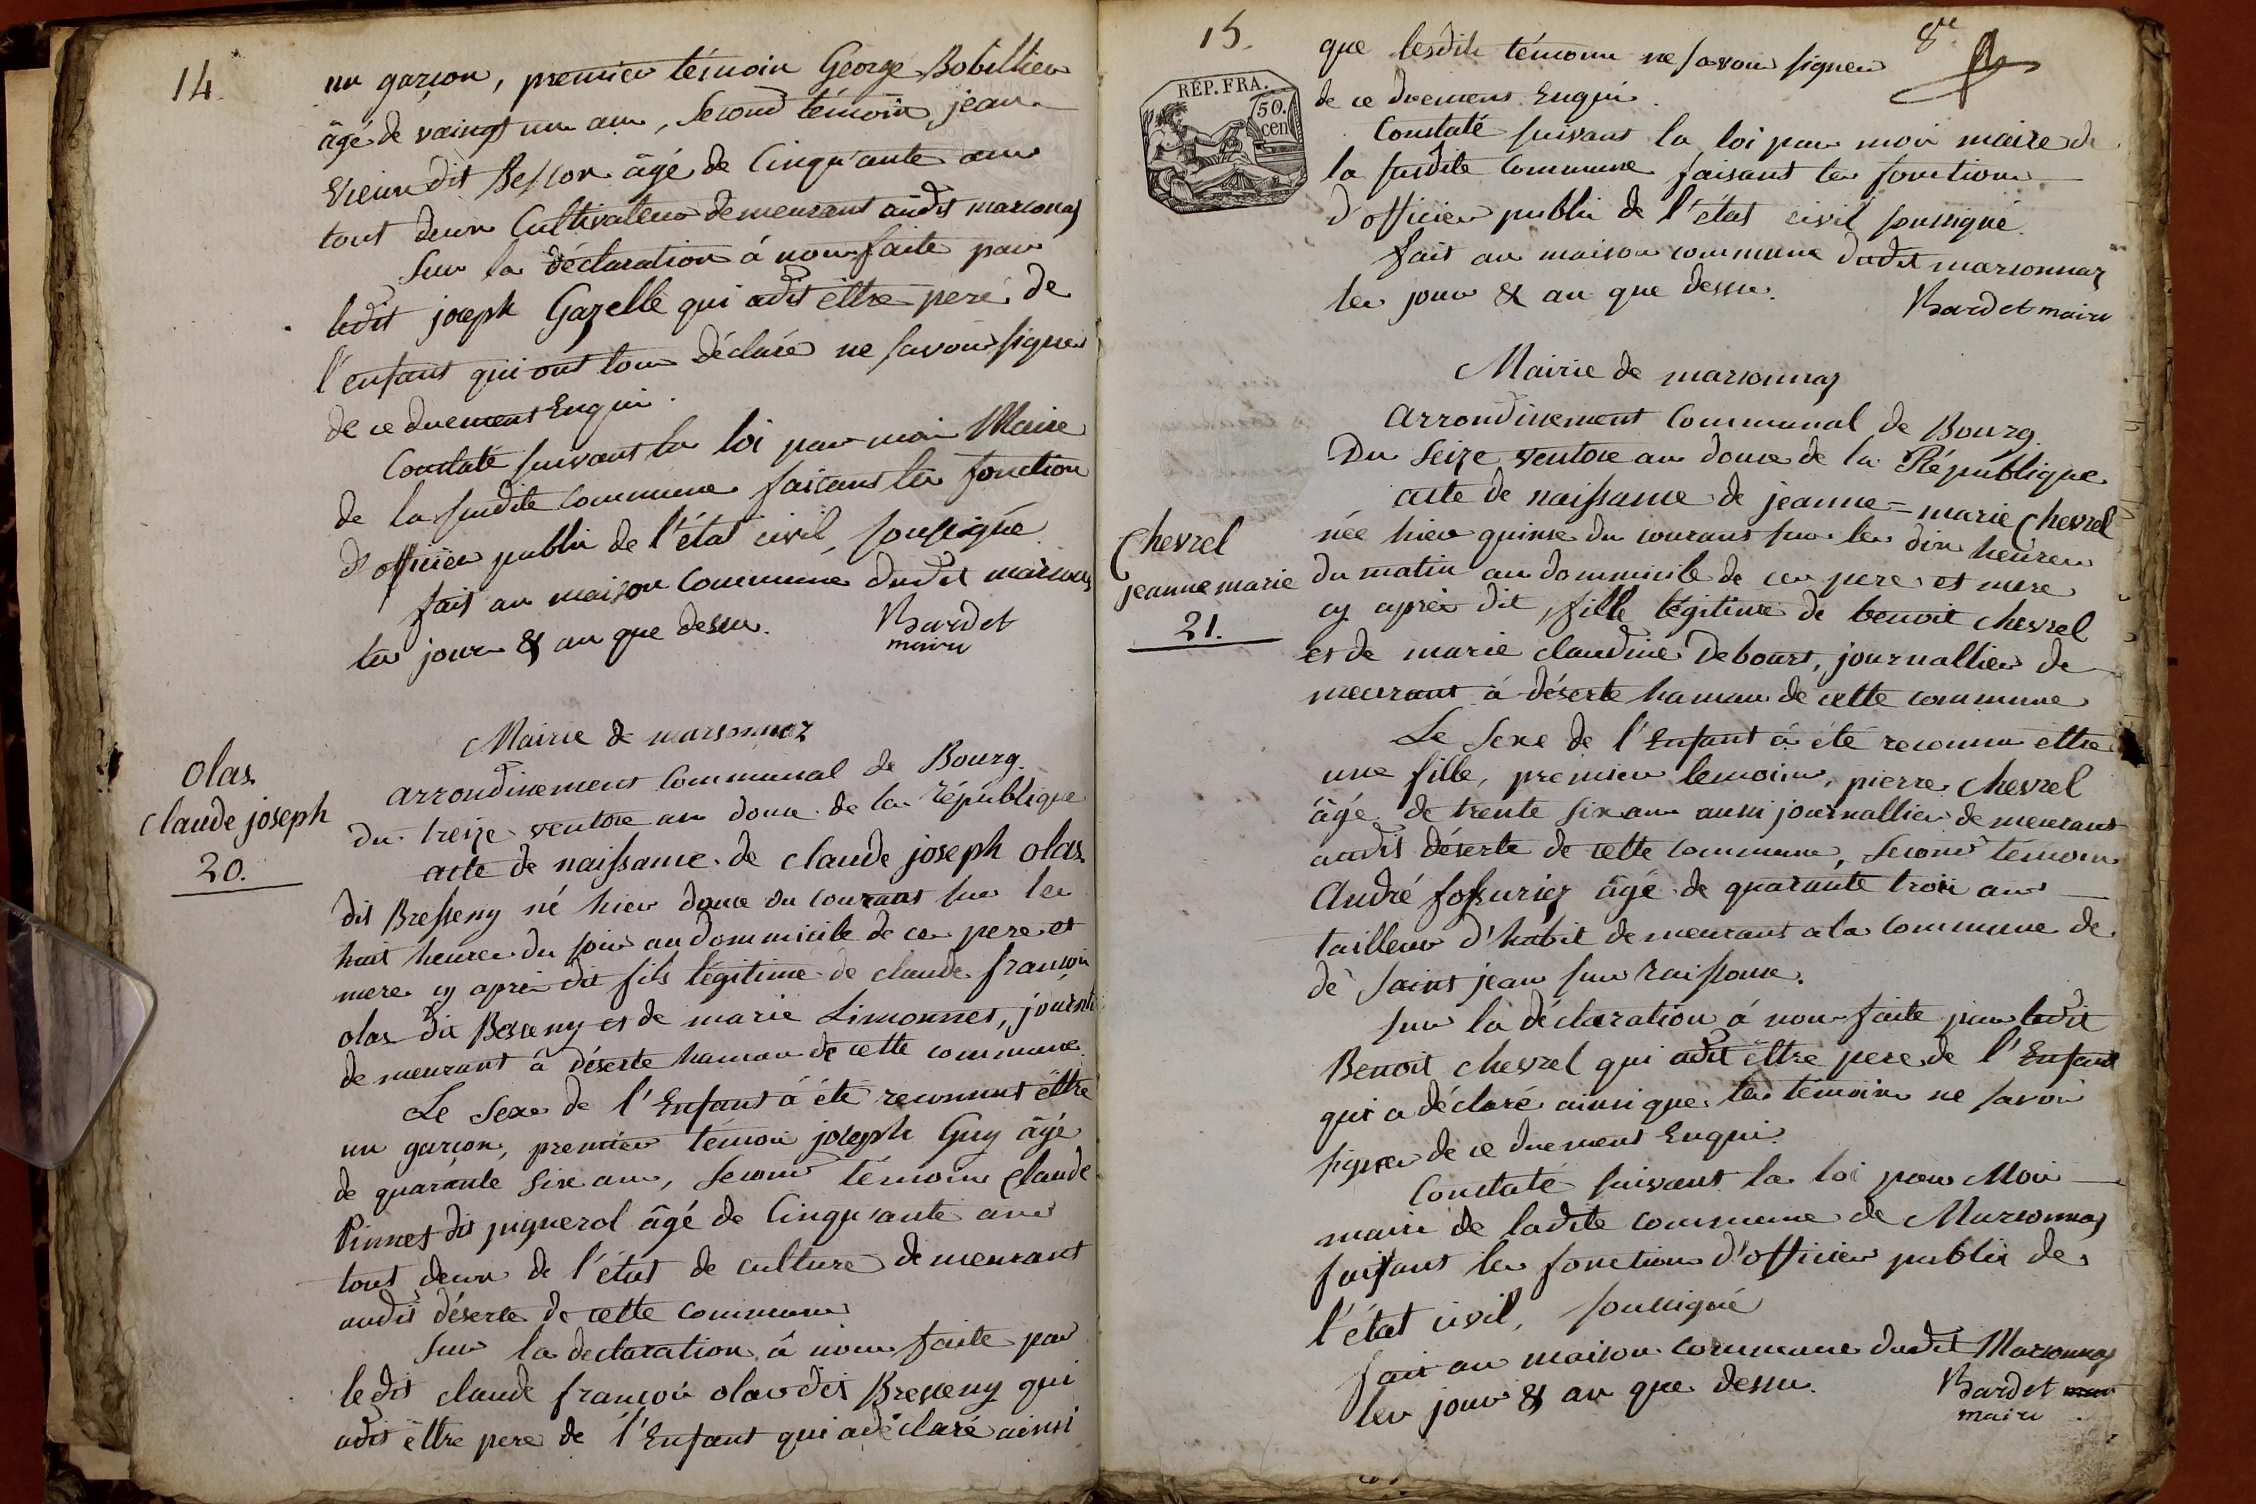 14.
un garçon, premier témoin George Bobillier
âgé de vaingt un ans, second témoin jean
Vieux dit Besson âgé de Cinqu'ante ans
tout deux Cultivateur demeurant audit marsonas
Sur la déclaration á nous faite par
ledit joseph Gazelle qui adit être pere de
l'enfant qui ont tous déclaré ne savoir signer
de ce duement Enquis.
Constaté suivant la loi par moi Maire
de la susdite commune faisant les fonction
d'officier public de l'état civil, soussigné
fait en maison commune dudit marsonas
les jour & an que dessus. Bardet
maire
Mairie de marsonnaz
arrondissement Communal de Bourg.
olas
claude joseph
20.
du treize ventose an douze de la république
acte de naissance de claude joseph olas
dit Bresseny né hier douze du courant sur les
huit heures du soir au dommicile de ces pere et
mere cy après dit fils légitime de claude francois
olas dit Breseny et de marie Limonnet, journ
demeurant à déserte hamau de cette commune
Le Sexe de l'Enfant à été reconnut être
un garcon, premier témoin joseph Guy âgé
de quarante six ans, second témoin Claude
Pinnet dit piquerol âgé de Cinqu'ante ans
tout deux de l'état de culture demeurant
audit déserte de cette commune
Sur la declaration à nous faite par
ledit claude francois olas dit Bresseny qui
adit être pere de l'Enfant qui adéclaré ainsi
15.
8e
que lesdits témoins ne savoir signer
RÉP. FRA.
50.
cen
de ce duement Enquis.
Constaté suivant la loi par moi maire de
la susdite commune faisant les fonctions
d'officier public de l'état civil soussigné.
fait en maison commune dudit marsonnaz
les jour & an que dessus. Bardet maire
Mairie de marsonnaz
arrondissement Communal de Bourg.
Du Seize ventose an douze de la République
acte de naissance de jeanne=marie Chevrel
Chevrel
jeanne marie
21.
née hier quinze du courant sur les dix heures
du matin au dommicile de ces pere et mere
cy après dit, fille légitime de benoit chevrel
et de marie claudine Debourt, journallier de
meurant à déserte hamau de cette commune
Le Sexe de l'Enfant à été reconnu être
une fille, premier temoins, pierre chevrel
âgé de trente six ans aussi journallier demeurant
audit déserte de cette commune, second témoin
André fossuriez âgé de quarante trois ans
tailleur d'habit demeurant a la commune de
de Saint jean sur raissouse.
Sur la déclaration á nous faite par ledit
Benoit chevrel qui adit être pere de l'Enfant
qui a déclaré ainsi que les témoins ne savoir
signer de ce duement Enquis.
Constaté suivant la loi par Moi
maire de ladite commune de Marsonnas
faisant les fonctions d'officier public de
l'état civil, soussigné
fait en maison commune dudit Marsonnas
les jour & an que dessus. Bardet
maire